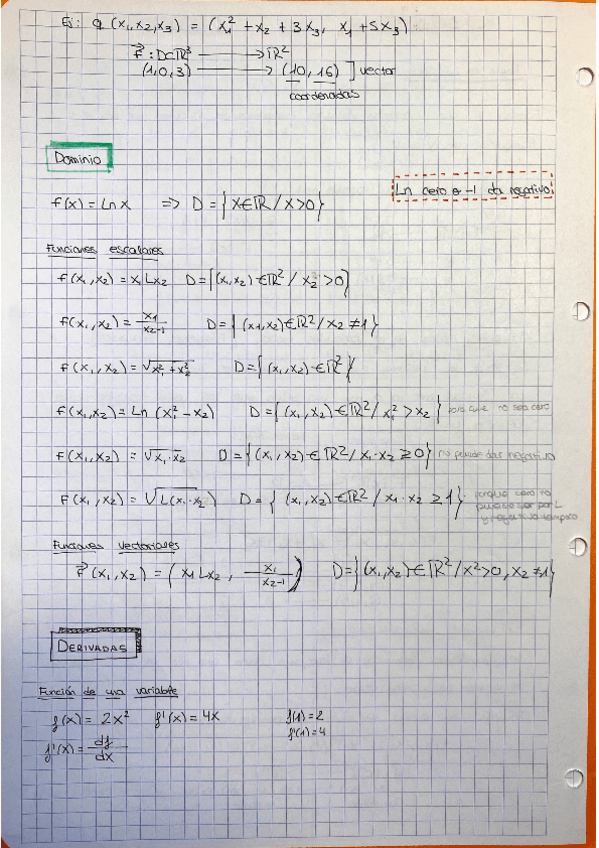 Ej: q (x₁,x₂,x₃) = (x₁² + x₂ + 3x₃, x₁ + 5x₃)
f⃗ : D⊂ℝ³ ⟶ ℝ²
(1,0,3) ⟶ (10, 16) ] vector
coordenadas
Dominio
Ln cero o -1 da negativo
f(x) = Ln x ⇒ D = {x∈ℝ / x>0}
Funciones escalares
f(x₁,x₂) = x₁Lx₂ D = {(x₁,x₂)∈ℝ² / x₂>0}
f(x₁,x₂) = x₁/(x₂-1) D = {(x₁,x₂)∈ℝ² / x₂≠1}
f(x₁,x₂) = √(x₁²+x₂²) D = {(x₁,x₂)∈ℝ²}
f(x₁,x₂) = Ln (x₁² - x₂) D = {(x₁,x₂)∈ℝ² / x₁² > x₂} para que no sea cero
f(x₁,x₂) = √(x₁·x₂) D = {(x₁,x₂)∈ℝ² / x₁·x₂ ≥ 0} no puede dar negativo
f(x₁,x₂) = √(L(x₁·x₂)) D = {(x₁,x₂)∈ℝ² / x₁·x₂ ≥ 1} porque cero no
puede ser por L
y negativo tampoco
Funciones vectoriales
f⃗(x₁,x₂) = (x₁Lx₂, x₁/(x₂-1)) D = {(x₁,x₂)∈ℝ² / x²>0, x₂≠1}
DERIVADAS
Función de una variable
f(x) = 2x² f'(x) = 4x f(1) = 2
f'(1) = 4
f'(x) = df/dx